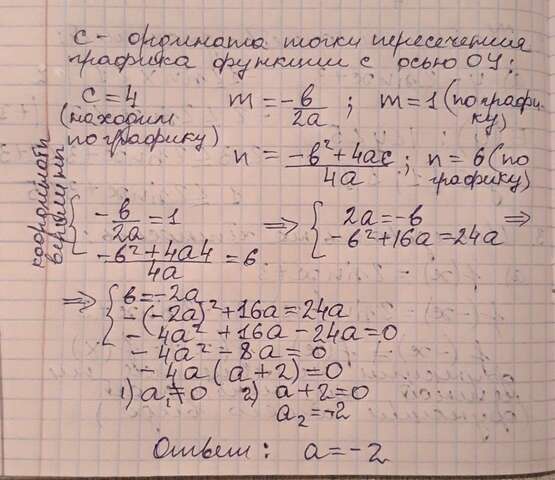 с - ордината точки пересечения
графика функции с осью ОУ:
c = 4
(находим
по графику)
m = -b/2a ; m = 1 (по графику)
n = -b²+4ac/4a ; n = 6 (по графику)
координаты вершины
{ -b/2a = 1
-b²+4a4/4a = 6
=> { 2a = -b
-b²+16a = 24a =>
=> { b = -2a
-(-2a)²+16a = 24a
-4a²+16a-24a = 0
-4a²-8a = 0
-4a(a+2) = 0
1) a₁≠0 2) a+2=0
a₂=-2
Ответ: a = -2